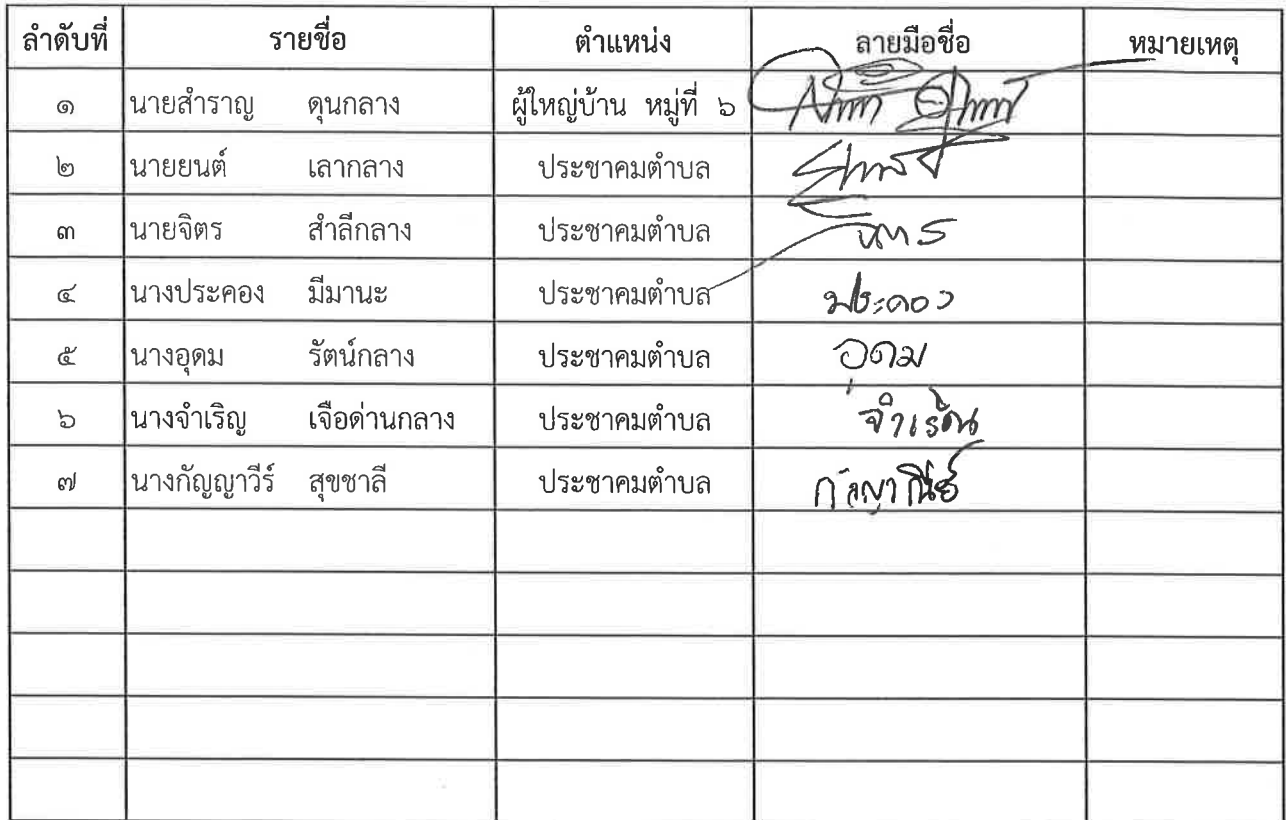 ลำดับที่ รายชื่อ ตำแหน่ง ลายมือชื่อ หมายเหตุ
๑ นายสำราญ ดุนกลาง ผู้ใหญ่บ้าน หมู่ที่ ๖
๒ นายยนต์ เลากลาง ประชาคมตำบล
๓ นายจิตร สำลีกลาง ประชาคมตำบล
๔ นางประคอง มีมานะ ประชาคมตำบล ประคอง
๕ นางอุดม รัตน์กลาง ประชาคมตำบล อุดม
๖ นางจำเริญ เจือด่านกลาง ประชาคมตำบล
๗ นางกัญญาวีร์ สุขชาลี ประชาคมตำบล